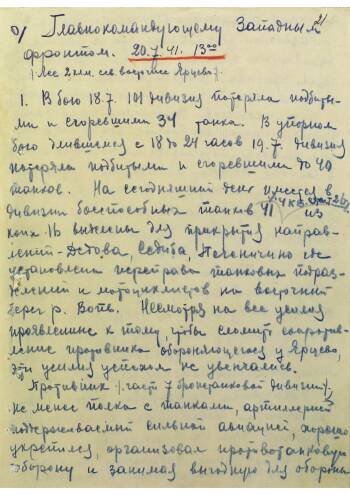 Главнокомандующему Западным
фронтом. 20.7.41. 13 00
Лес 2 клм. сев. восточнее Ярцево
1. В бою 18.7. 101 дивизия потеряла подбиты-
ми и сгоревшими 34 танка. В упорном
бою длившемся с 18 до 24 часов 19.7. дивизия
потеряла подбитыми и сгоревшими до 40
танков. На сегодняшний день имеется в
дивизии боеспособных танков 41 из
коих 1В выжены для прикрытия направ-
лений - Дедова, Седиба, где
установлена переправа танковых подраз-
делений и мотоциклистов на восточный
берег р. Вопь. Несмотря на все усилия
проявленные к тому, чтобы сломить сопротив-
ление противника обороняющегося у Ярцево,
эти усилия успехом не увенчались.
Противник части 7 бронетанковой дивизии,
не менее полка с танками, артиллерией
поддерживаемой сильной авиацией, хорошо
укрепился, организовал противотанковую
оборону и занимая выгодную для обороны